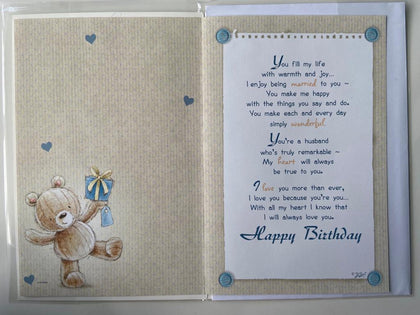 You fill my life
with warmth and joy...
I enjoy being married to you ~
You make me happy
with the things you say and do.
You make each and every day
simply wonderful
You're a husband
who's truly remarkable ~
My heart will always
be true to you.
I love you more than ever,
I love you because you're you...
With all my heart I know that
I will always love you.
Happy Birthday